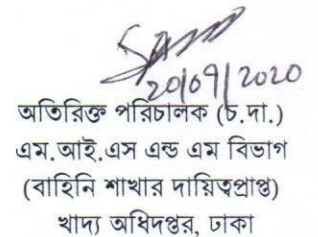 20/09/2020
অতিরিক্ত পরিচালক (চ.দা.)
এম.আই.এস এন্ড এম বিভাগ
(বাহিনি শাখার দায়িত্বপ্রাপ্ত)
খাদ্য অধিদপ্তর, ঢাকা